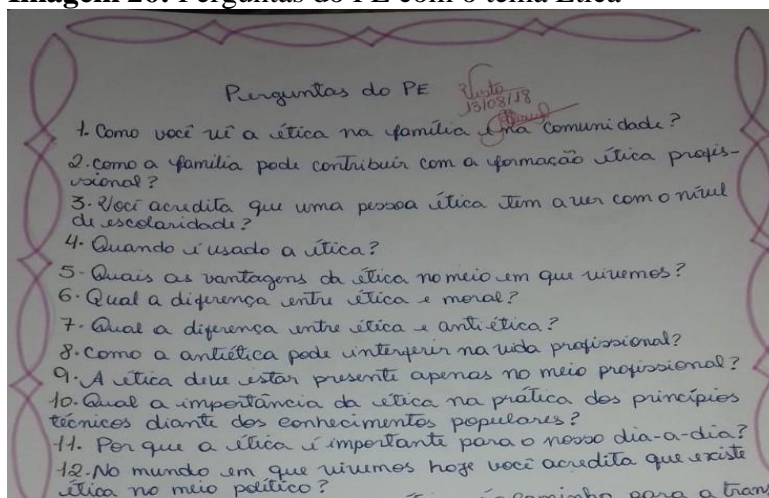 Imagem 20: Perguntas do PE com o tema Ética
Perguntas do PE
Visto
13/08/18
1. Como você vê a ética na família e na comunidade?
2. como a família pode contribuir com a formação ética profis-
sional?
3. Você acredita que uma pessoa ética tem a ver com o nível
de escolaridade?
4. Quando é usado a ética?
5. Quais as vantagens da ética no meio em que vivemos?
6. Qual a diferença entre ética e moral?
7. Qual a diferença entre ética e antiética?
8. como a antiética pode interferir na vida profissional?
9. A ética deve estar presente apenas no meio profissional?
10. Qual a importância da ética na prática dos princípios
técnicos diante dos conhecimentos populares?
11. Por que a ética é importante para o nosso dia-a-dia?
12. No mundo em que vivemos hoje você acredita que existe
ética no meio político?
caminho para a tran